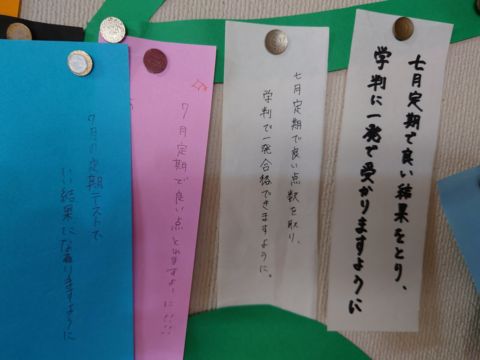 七月定期で良い結果をとり、
学判に一発で受かりますように
七月定期で良い点数を取り、
学判で一発合格できますように。
7月定期で良い点とれますように!!!
7月の定期テストで
いい結果になりますように